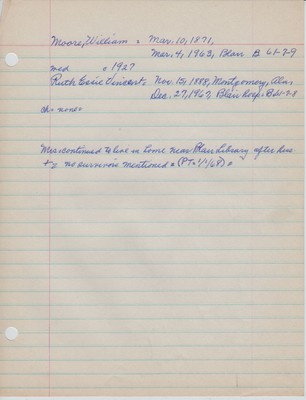 Moore, William = Mar. 10, 1871,
Mar. 4, 1963, Blair B 61-7-9
med c 1927
Ruth Essie Vincent = Nov. 15, 1888, Montgomery, Ala.
Dec. 27, 1967, Blair Hosp. B 61-7-8
ch = none =
Mrs. continued to live in home near Blair Library after
+ = no survivors mentioned = (PT = 1/1/68)